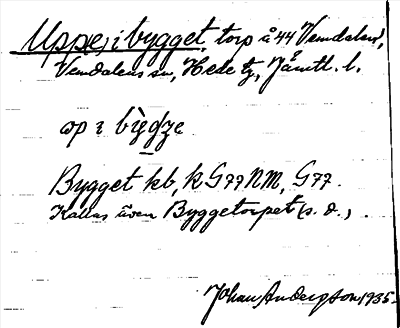 Upp(e) i bygget, torp å 44 Vemdalen,
Vemdalens sn, Hede tg, Jämtl. l.
ɷp ɩ bỳgʒe
Bygget kb, k G77 NM, G77.
Kallas även Byggetorpet (s. d.)
Johan Anderson 1935.